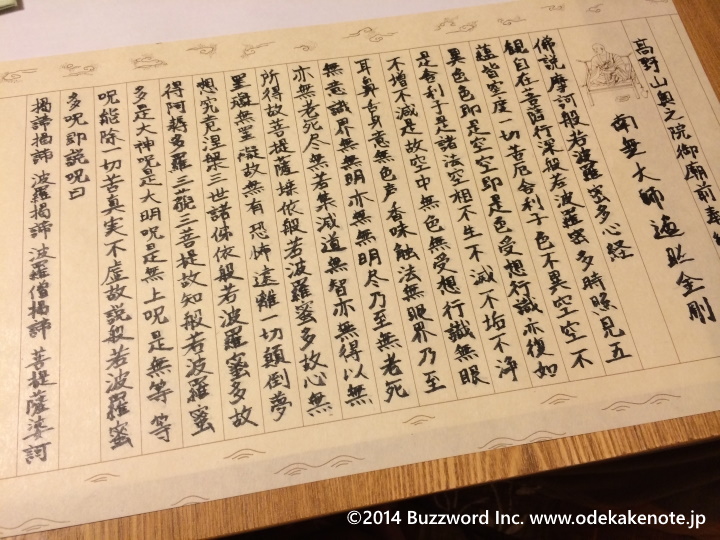 高野山奥之院御廟前奉
南無大師遍照金剛
佛説摩訶般若波羅蜜多心経
観自在菩薩行深般若波羅蜜多時照見五
蘊皆空度一切苦厄舎利子色不異空空不
異色色即是空空即是色受想行識亦復如
是舎利子是諸法空相不生不滅不垢不浄
不増不減是故空中無色無受想行識無眼
耳鼻舌身意無色声香味触法無眼界乃至
無意識界無無明亦無無明尽乃至無老死
亦無老死尽無苦集滅道無智亦無得以無
所得故菩提薩埵依般若波羅蜜多故心無
罣礙無罣礙故無有恐怖遠離一切顛倒夢
想究竟涅槃三世諸佛依般若波羅蜜多故
得阿耨多羅三藐三菩提故知般若波羅蜜
多是大神呪是大明呪是無上呪是無等等
呪能除一切苦真実不虚故説般若波羅蜜
多呪即説呪曰
掲諦掲諦 波羅掲諦 波羅僧掲諦 菩提薩婆訶
©2014 Buzzword Inc. www.odekakenote.jp